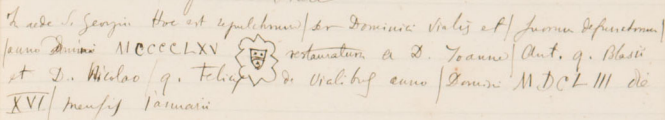 In aede S. Georgii Hoc est sepulchrum | Ser Dominici Vialis et | suorum defunctorum |
| anno Domini MCCCCLXV restauratum a D. Joanne | Ant. q. Blasii
et D. Nicolao | q. Felicis de Vialibus anno | Domini MDCLIII die
XVI | mensis Januarii